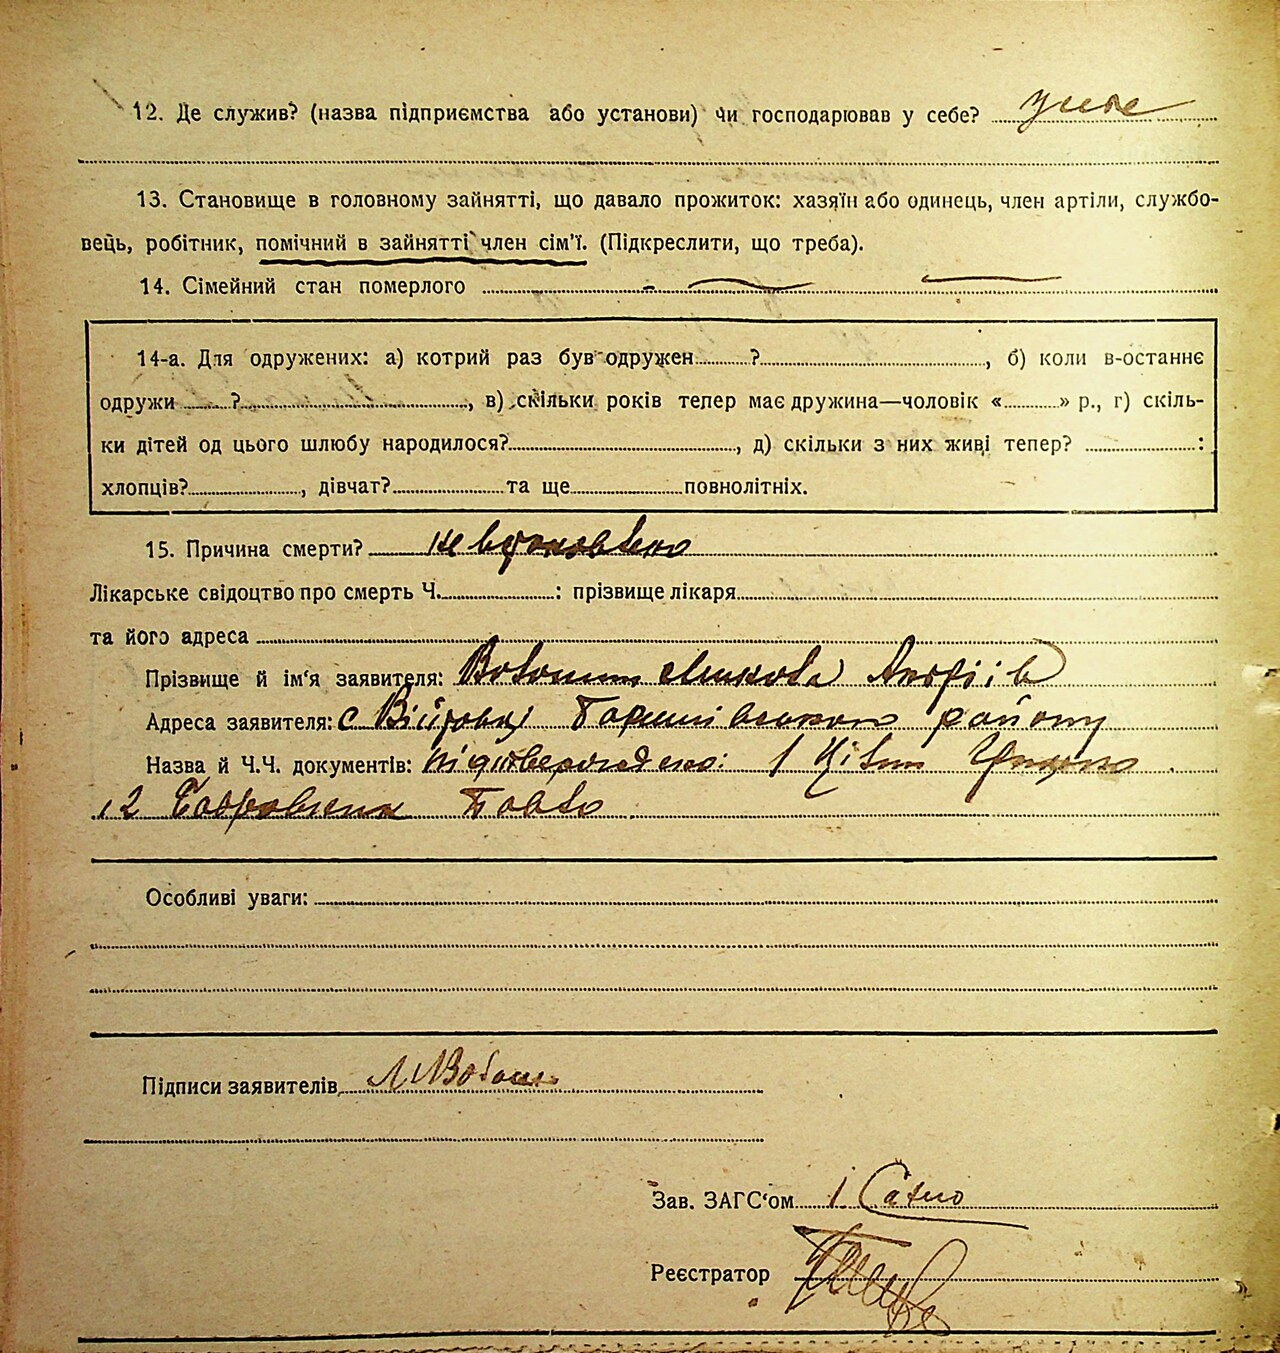 12. Де служив? (назва підприємства або установи) Чи господарював у себе?
13. Становище в головному зайнятті, що давало прожиток: хазяїн або одинець, член артіли, службо-
вець, робітник, помічний в зайнятті член сім'ї. (Підкреслити, що треба).
14. Сімейний стан померлого
14-а. Для одружених: а) котрий раз був одружен ? , б) коли в-останнє
одружи ? , в) скільки років тепер має дружина—чоловік « » р., г) скіль-
ки дітей од цього шлюбу народилося? , д) скільки з них живі тепер? :
хлопців? , дівчат? та ще повнолітніх.
15. Причина смерти? не встановлено
Лікарське свідоцтво про смерть Ч. : прізвище лікаря
та його адреса
Прізвище й ім'я заявителя: Андріїв
Адреса заявителя: с району
Назва й Ч.Ч. документів: 1
2
Особливі уваги:
Підписи заявителів
Зав. ЗАГС'ом І
Реєстратор